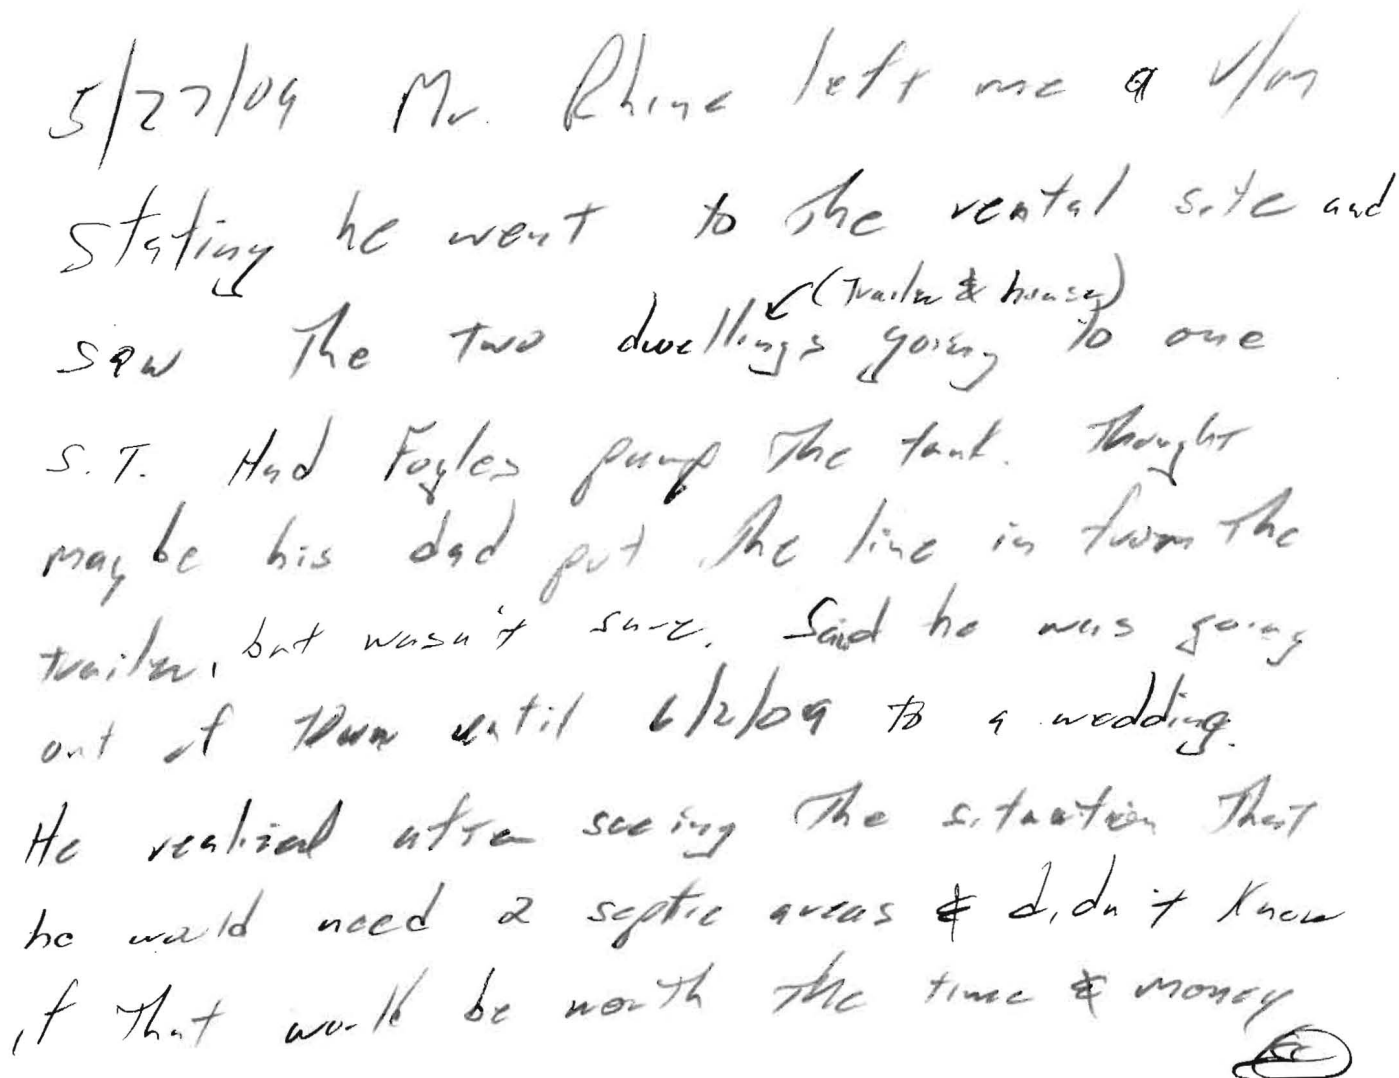 5/27/09 Mr. Rhine left me a V/m
stating he went to the rental site and
(trailer & house)
saw the two dwellings going to one
S.T. Had Fogles pump the tank. Thought
maybe his dad put the line in from the
trailer, but wasn't sure. Said he was going
out of town until 6/2/09 to a wedding.
He realized after seeing the situation that
he would need 2 septic areas & didn't know
if that would be worth the time & money